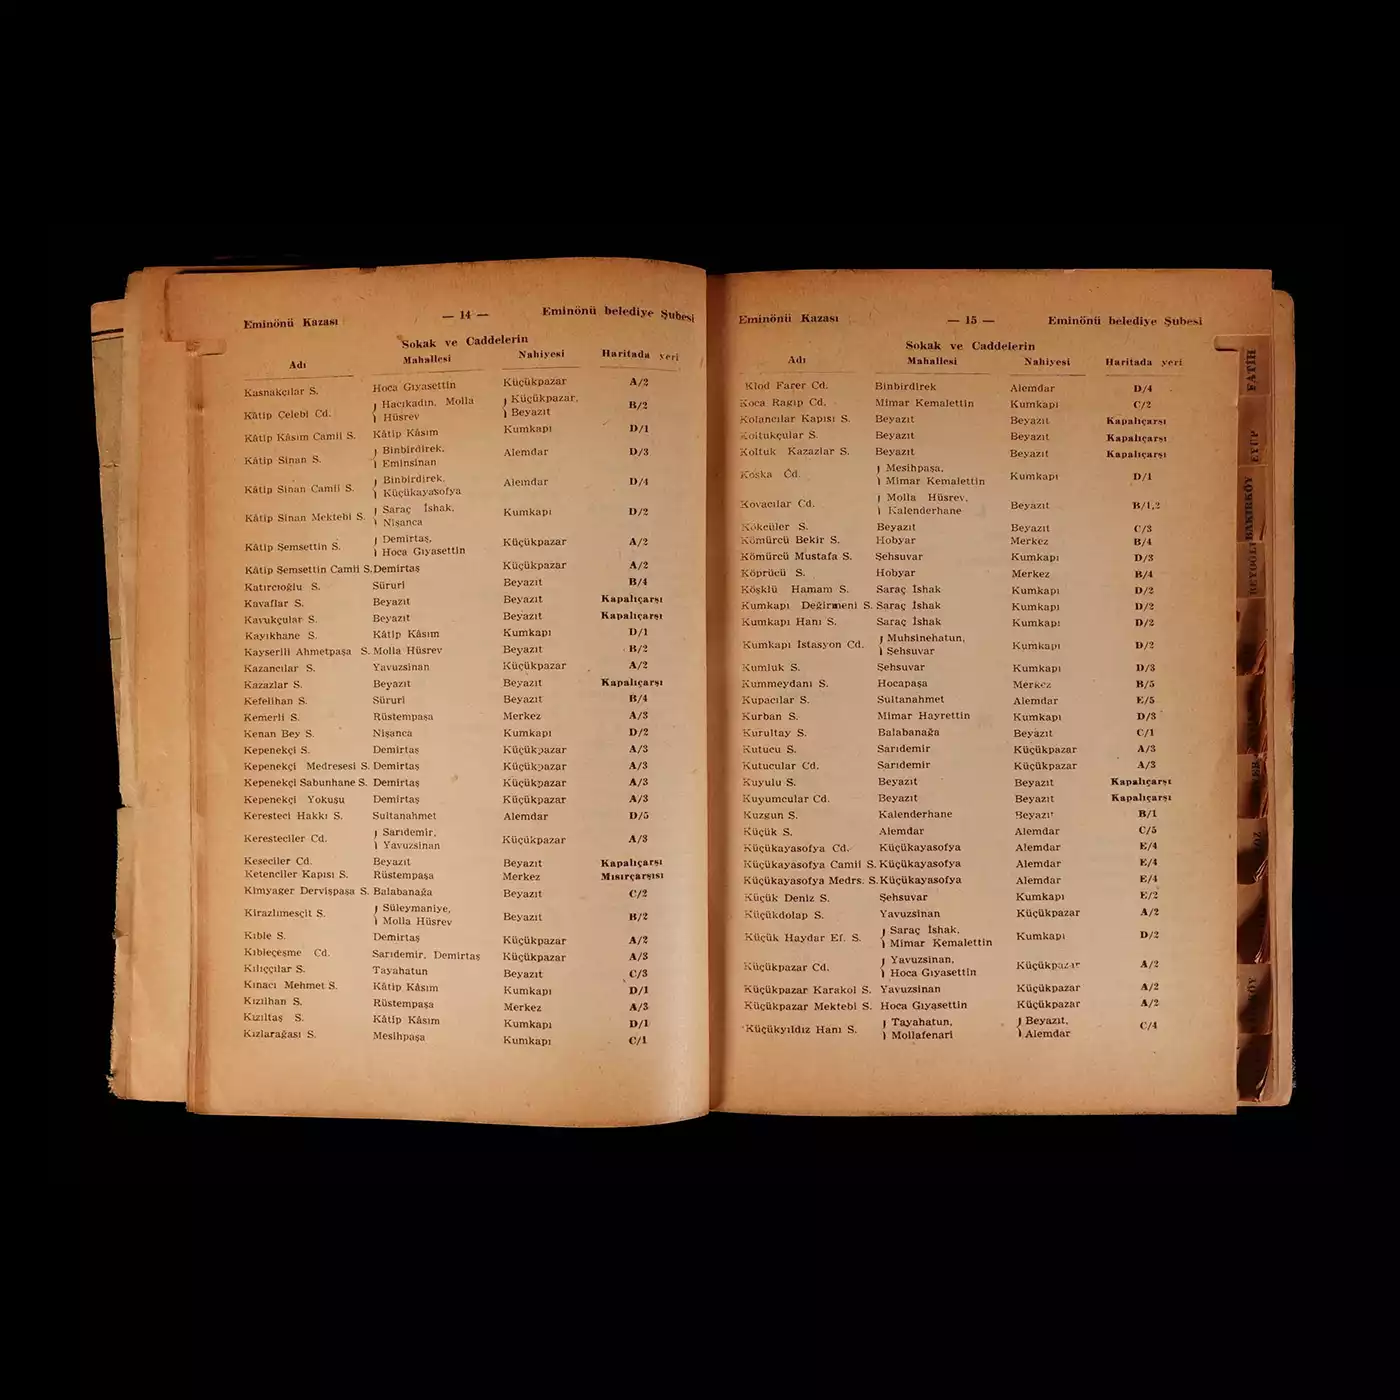 Eminönü Kazası — 14 — Eminönü belediye Şubesi
Sokak ve Caddelerin
Adı Mahallesi Nahiyesi Haritada yeri
Kasnakçılar S. Hoca Gıyasettin Küçükpazar A/2
Kâtip Çelebi Cd. Hacıkadın, Molla Hüsrev Küçükpazar, Beyazıt B/2
Kâtip Kâsım Camii S. Kâtip Kâsım Kumkapı D/1
Kâtip Sinan S. Binbirdirek, Eminsinan Alemdar D/3
Kâtip Sinan Camii S. Binbirdirek, Küçükayasofya Alemdar D/4
Kâtip Sinan Mektebi S. Saraç İshak, Nişanca Kumkapı D/2
Kâtip Şemsettin S. Demirtaş, Hoca Gıyasettin Küçükpazar A/2
Kâtip Şemsettin Camii S. Demirtaş Küçükpazar A/2
Katırcıoğlu S. Sürurî Beyazıt B/4
Kavaflar S. Beyazıt Beyazıt Kapalıçarşı
Kavukçular S. Beyazıt Beyazıt Kapalıçarşı
Kayıkhane S. Kâtip Kâsım Kumkapı D/1
Kayserili Ahmetpaşa S. Molla Hüsrev Beyazıt B/2
Kazancılar S. Yavuzsinan Küçükpazar A/2
Kazazlar S. Beyazıt Beyazıt Kapalıçarşı
Kefelihan S. Süruri Beyazıt B/4
Kemerli S. Rüstempaşa Merkez A/3
Kenan Bey S. Nişanca Kumkapı D/2
Kepenekçi S. Demirtaş Küçükpazar A/3
Kepenekçi Medresesi S. Demirtaş Küçükpazar A/3
Kepenekçi Sabunhane S. Demirtaş Küçükpazar A/3
Kepenekçi Yokuşu Demirtaş Küçükpazar A/3
Keresteci Hakkı S. Sultanahmet Alemdar D/5
Keresteciler Cd. Sarıdemir, Yavuzsinan Küçükpazar A/3
Keseciler Cd. Beyazıt Beyazıt Kapalıçarşı
Ketenciler Kapısı S. Rüstempaşa Merkez Mısırçarşısı
Kimyager Dervişpaşa S. Balabanağa Beyazıt C/2
Kirazlımesçit S. Süleymaniye, Molla Hüsrev Beyazıt B/2
Kıble S. Demirtaş Küçükpazar A/2
Kıbleçeşme Cd. Sarıdemir, Demirtaş Küçükpazar A/3
Kılıççılar S. Tayahatun Beyazıt C/3
Kınacı Mehmet S. Kâtip Kâsım Kumkapı D/1
Kızılhan S. Rüstempaşa Merkez A/3
Kızıltaş S. Kâtip Kâsım Kumkapı D/1
Kızlarağası S. Mesihpaşa Kumkapı C/1
Eminönü Kazası — 15 — Eminönü belediye Şubesi
Sokak ve Caddelerin
Adı Mahallesi Nahiyesi Haritada yeri
Klod Farer Cd. Binbirdirek Alemdar D/4
Koca Ragıp Cd. Mimar Kemalettin Kumkapı C/2
Kolancılar Kapısı S. Beyazıt Beyazıt Kapalıçarşı
Koltukçular S. Beyazıt Beyazıt Kapalıçarşı
Koltuk Kazazlar S. Beyazıt Beyazıt Kapalıçarşı
Koska Cd. Mesihpaşa, Mimar Kemalettin Kumkapı D/1
Kovacılar Cd. Molla Hüsrev, Kalenderhane Beyazıt B/1,2
Kökcüler S. Beyazıt Beyazıt C/3
Kömürcü Bekir S. Hobyar Merkez B/4
Kömürcü Mustafa S. Şehsuvar Kumkapı D/3
Köprücü S. Hobyar Merkez B/4
Köşklü Hamam S. Saraç İshak Kumkapı D/2
Kumkapı Değirmeni S. Saraç İshak Kumkapı D/2
Kumkapı Hanı S. Saraç İshak Kumkapı D/2
Kumkapı İstasyon Cd. Muhsinehatun, Şehsuvar Kumkapı D/2
Kumluk S. Şehsuvar Kumkapı D/3
Kummeydanı S. Hocapaşa Merkez B/5
Kupacılar S. Sultanahmet Alemdar E/5
Kurban S. Mimar Hayrettin Kumkapı D/3
Kurultay S. Balabanağa Beyazıt C/1
Kutucu S. Sarıdemir Küçükpazar A/3
Kutucular Cd. Sarıdemir Küçükpazar A/3
Kuyulu S. Beyazıt Beyazıt Kapalıçarşı
Kuyumcular Cd. Beyazıt Beyazıt Kapalıçarşı
Kuzgun S. Kalenderhane Beyazıt B/1
Küçük S. Alemdar Alemdar C/5
Küçükayasofya Cd. Küçükayasofya Alemdar E/4
Küçükayasofya Camii S. Küçükayasofya Alemdar E/4
Küçükayasofya Medrs. S. Küçükayasofya Alemdar E/4
Küçük Deniz S. Şehsuvar Kumkapı E/2
Küçükdolap S. Yavuzsinan Küçükpazar A/2
Küçük Haydar Ef. S. Saraç İshak, Mimar Kemalettin Kumkapı D/2
Küçükpazar Cd. Yavuzsinan, Hoca Gıyasettin Küçükpazar A/2
Küçükpazar Karakol S. Yavuzsinan Küçükpazar A/2
Küçükpazar Mektebi S. Hoca Gıyasettin Küçükpazar A/2
Küçükyıldız Hanı S. Tayahatun, Mollafenari Beyazıt, Alemdar C/4
FATİH
EYÜP
BAKIRKÖY
BEYOĞLU